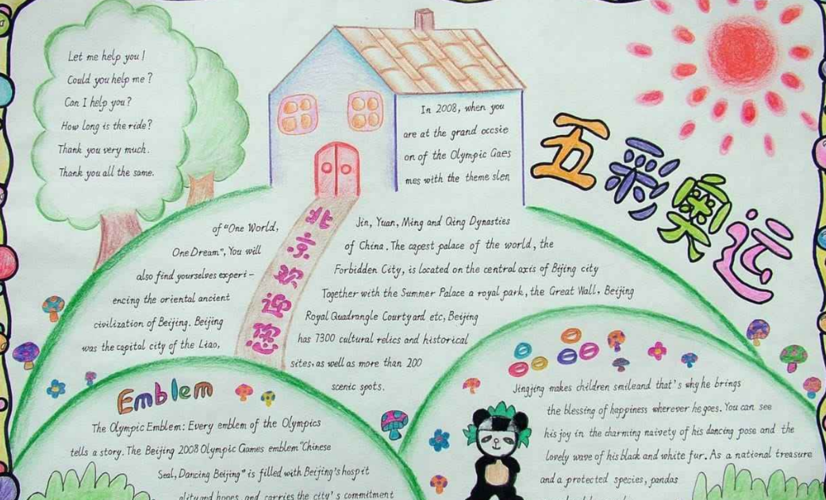 Let me help you!
Could you help me?
Can I help you?
How long is the ride?
Thank you very much.
Thank you all the same.
In 2008, when you
are at the grand occsie
on of the Olympic Gaes
mes with the theme slen
五彩奥运
北京欢迎您
of "One World,
One Dream", You will
also find yourselves experi-
encing the oriental ancient
civilization of Beijing. Beijing
was the capital city of the Liao,
Jin, Yuan, Ming and Qing Dynasties
of China. The capest palace of the world, the
Forbidden City, is located on the central axis of Bijing city
Together with the Summer Palace a royal park, the Great Wall, Beijing
Royal Quadrangle Courtyard etc, Beijing
has 7300 cultural relics and historical
sites, as well as more than 200
scenic spots.
Emblem
The Olympic Emblem: Every emblem of the Olympics
tells a story. The Beijing 2008 Olympic Games emblem "Chinese
Seal, Dancing Beijing" is filled with Beijing's hospit
ality and hopes, and carries the city's commitment
Jingjing makes children smileand that's why he brings
the blessing of happiness wherever he goes. You can see
his joy in the charming naivety of his dancing pose and the
lovely wave of his black and white fur. As a national treasure
and a protected species, pandas